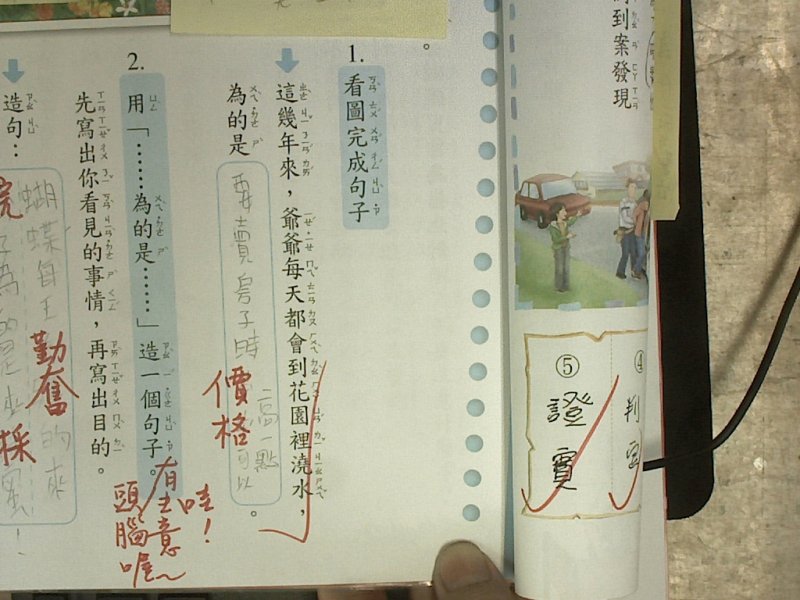 到案發現
④
判
⑤
證實
1.
看圖完成句子
這幾年來，爺爺每天都會到花園裡澆水，
為的是
要賣房子時
價格
高一點
可以
。
哇！
有生意
頭腦喔~
2.
用「……為的是……」造一個句子。
先寫出你看見的事情，再寫出目的。
造句：
蝴蝶
勤奮
的來
採